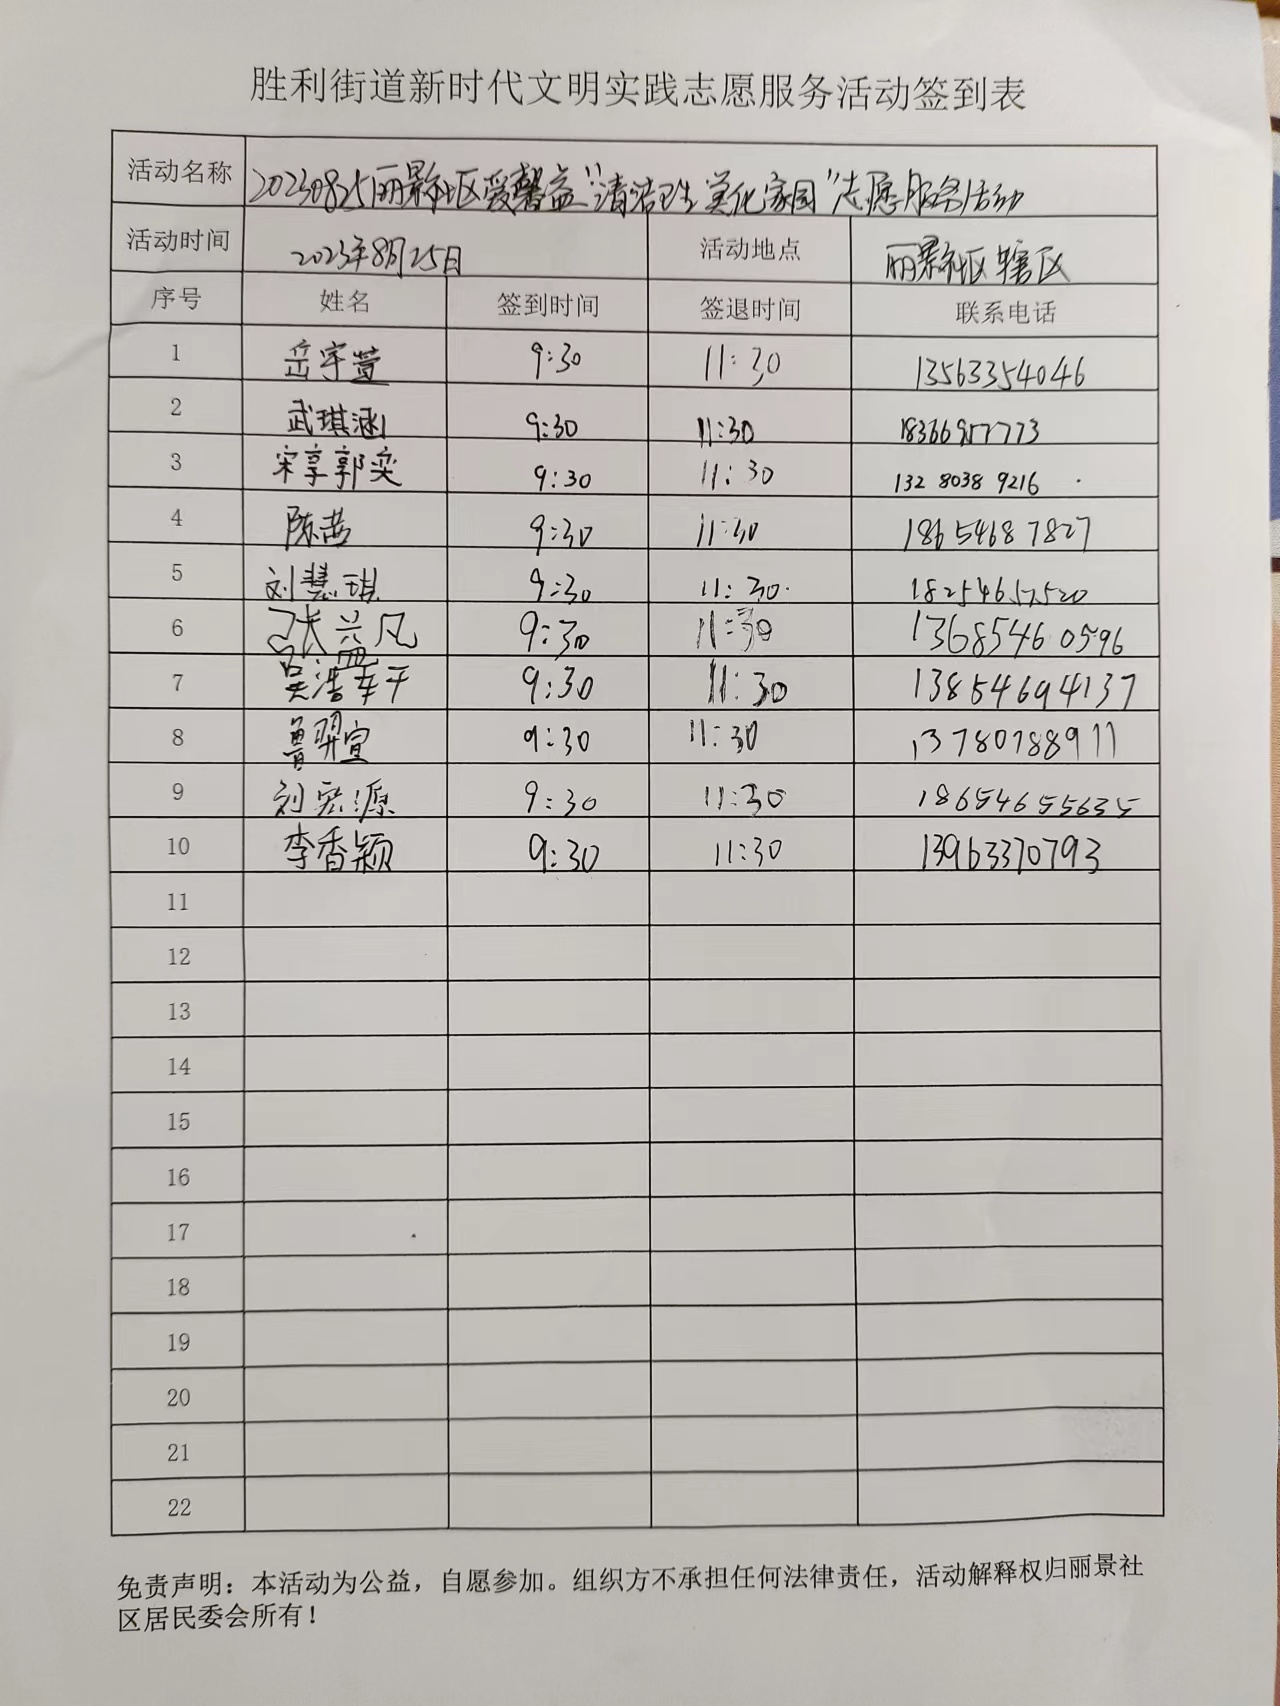 胜利街道新时代文明实践志愿服务活动签到表
活动名称 20230825丽景社区爱馨益“清洁卫生 美化家园”志愿服务活动
活动时间 2023年8月25日 活动地点 丽景社区辖区
序号 姓名 签到时间 签退时间 联系电话
1 岳宇萱 9:30 11:30 13563354046
2 武琪涵 9:30 11:30 18366957773
3 宋享郭奕 9:30 11:30 132 8038 9216
4 陈茜 9:30 11:30 18654687827
5 刘慧琪 9:30 11:30 18254657520
6 张益凡 9:30 11:30 13685460596
7 吴浩 9:30 11:30 13854694137
8 鲁羿宣 9:30 11:30 13780788911
9 刘宏源 9:30 11:30 18654655635
10 李香颖 9:30 11:30 13963370793
11
12
13
14
15
16
17
18
19
20
21
22
免责声明：本活动为公益，自愿参加。组织方不承担任何法律责任，活动解释权归丽景社
区居民委会所有！